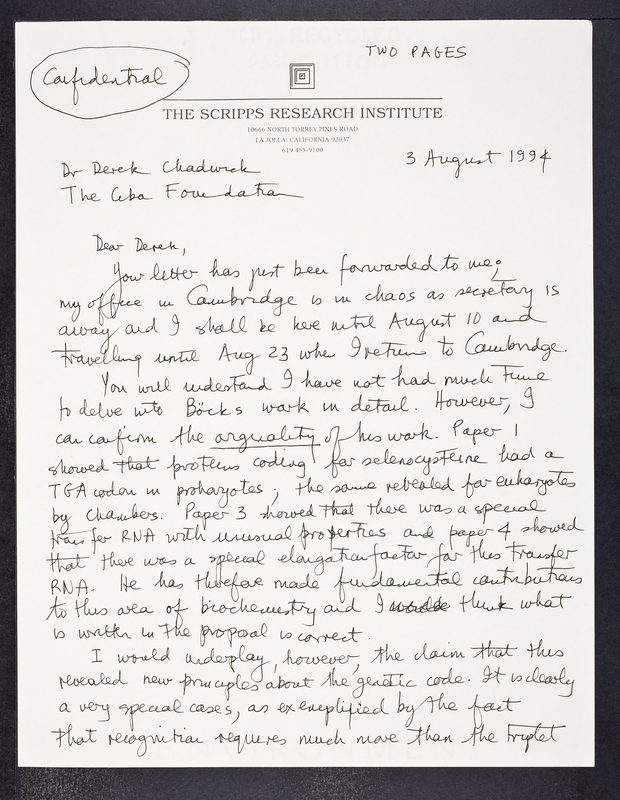 TWO PAGES
Confidential
THE SCRIPPS RESEARCH INSTITUTE
10666 NORTH TORREY PINES ROAD
LA JOLLA, CALIFORNIA 92037
619 455-9100
3 August 1994
Dr Derek Chadwick
The Ciba Foundation
Dear Derek,
Your letter has just been forwarded to me;
my office in Cambridge is in chaos as secretary is
away and I shall be here until August 10 and
travelling until Aug 23 when I return to Cambridge.
You will understand I have not had much time
to delve into Böck's work in detail. However, I
can confirm the orginality of his work. Paper 1
showed that proteins coding for selenocysteine had a
TGA codon in prokaryotes; the same revealed for eukaryotes
by Chambers. Paper 3 showed that there was a special
transfer RNA with unusual properties and paper 4 showed
that there was a special elongation factor for this transfer
RNA. He has therefore made fundamental contributions
to this area of biochemistry and I would think what
is written in the proposal is correct.
I would underplay, however, the claim that this
revealed new principles about the genetic code. It is clearly
a very special cases, as exemplified by the fact
that recognition requires much more than the triplet